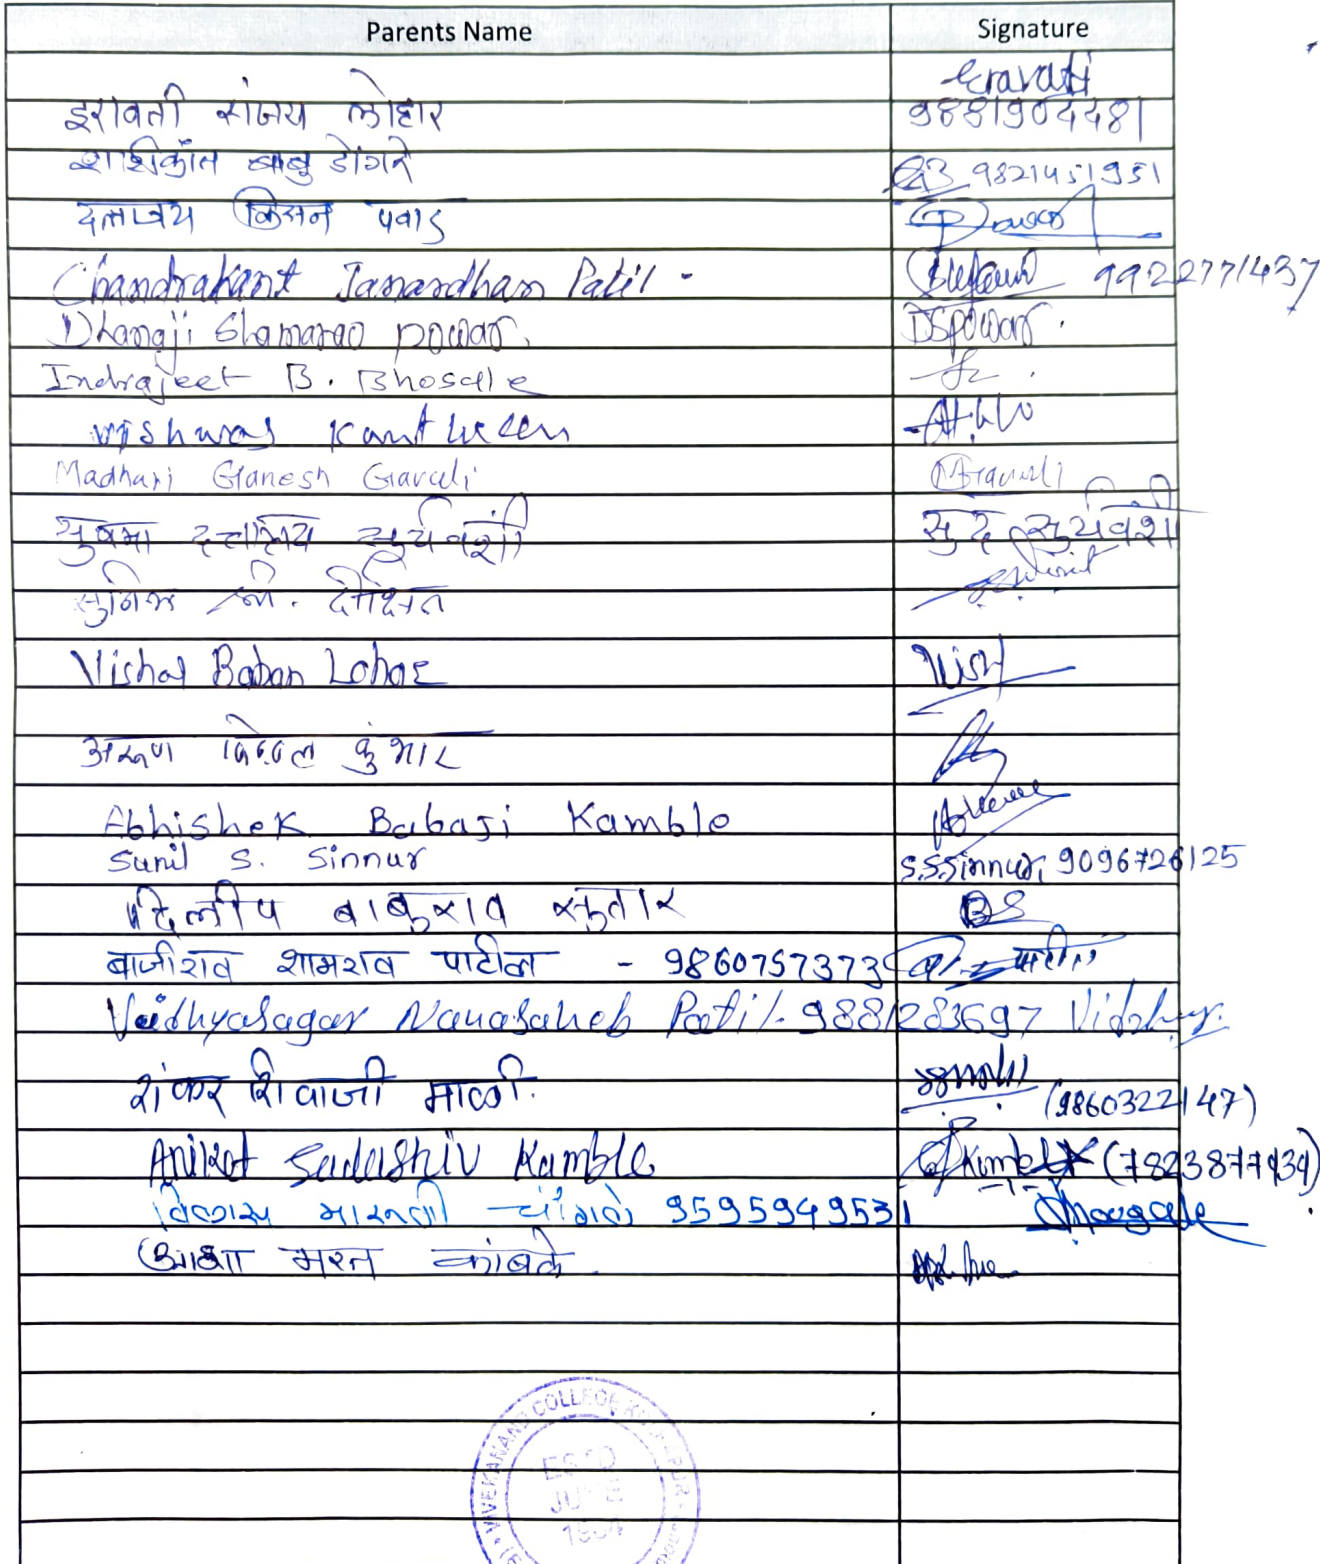 Parents Name Signature
Eravati
इरावती संजय लोहार 9881904481
शशिकांत बाबु डोंगरे 9821451951
दत्तात्रय किसन पवार
Chandrakant Janardhan Patil - 9922771437
Dhanaji Shamarao powar. DSpowar.
Indrajeet B. Bhosale
Vishwas Kant
Madhari Ganesh Gavali Gavali
सुषमा दत्तात्रय सुर्यवंशी सु द सुर्यवंशी
श्री. दीक्षित
Vishal Baban Lohar Vish
अरुण विठ्ठल कुंभार
Abhishek Babaji Kamble
Sunil S. Sinnur S.S.Sinnur, 9096726125
दिलीप बाबुराव सुतार DS
बाजीराव शामराव पाटील - 9860757373 पाटील
Vaidhyasagar Nanasaheb Patil. 9881283697
शंकर शिवाजी माळी. (9860322147)
Aniket Sadashiv Kamble Kamble (7823877434)
विलास मारुती चौगले 9595949531 Chougale
आशा भरत कांबळे.
VIVEKANAND COLLEGE
ESTD
JUNE
1964